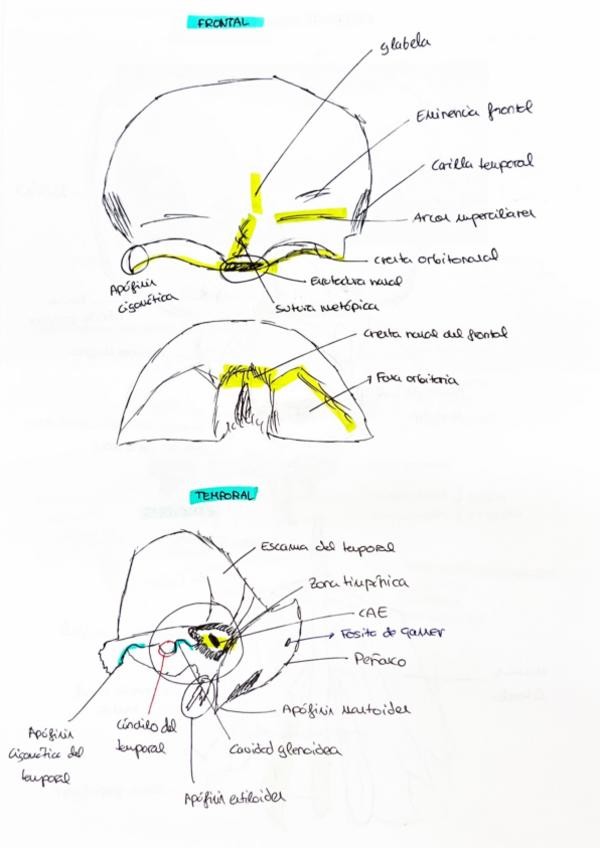 FRONTAL
glabela
Eminencia frontal
Carilla temporal
Arcos superciliares
cresta orbitonasal
Escotadura nasal
Sutura metópica
Apófisis
cigomática
Cresta nasal del frontal
Fosa orbitaria
TEMPORAL
Escama del temporal
Zona timpánica
CAE
Fosita de gasser
Peñasco
Apófisis mastoides
Cavidad glenoidea
Cóndilo del
temporal
Apófisis
cigomática del
temporal
Apófisis estiloides